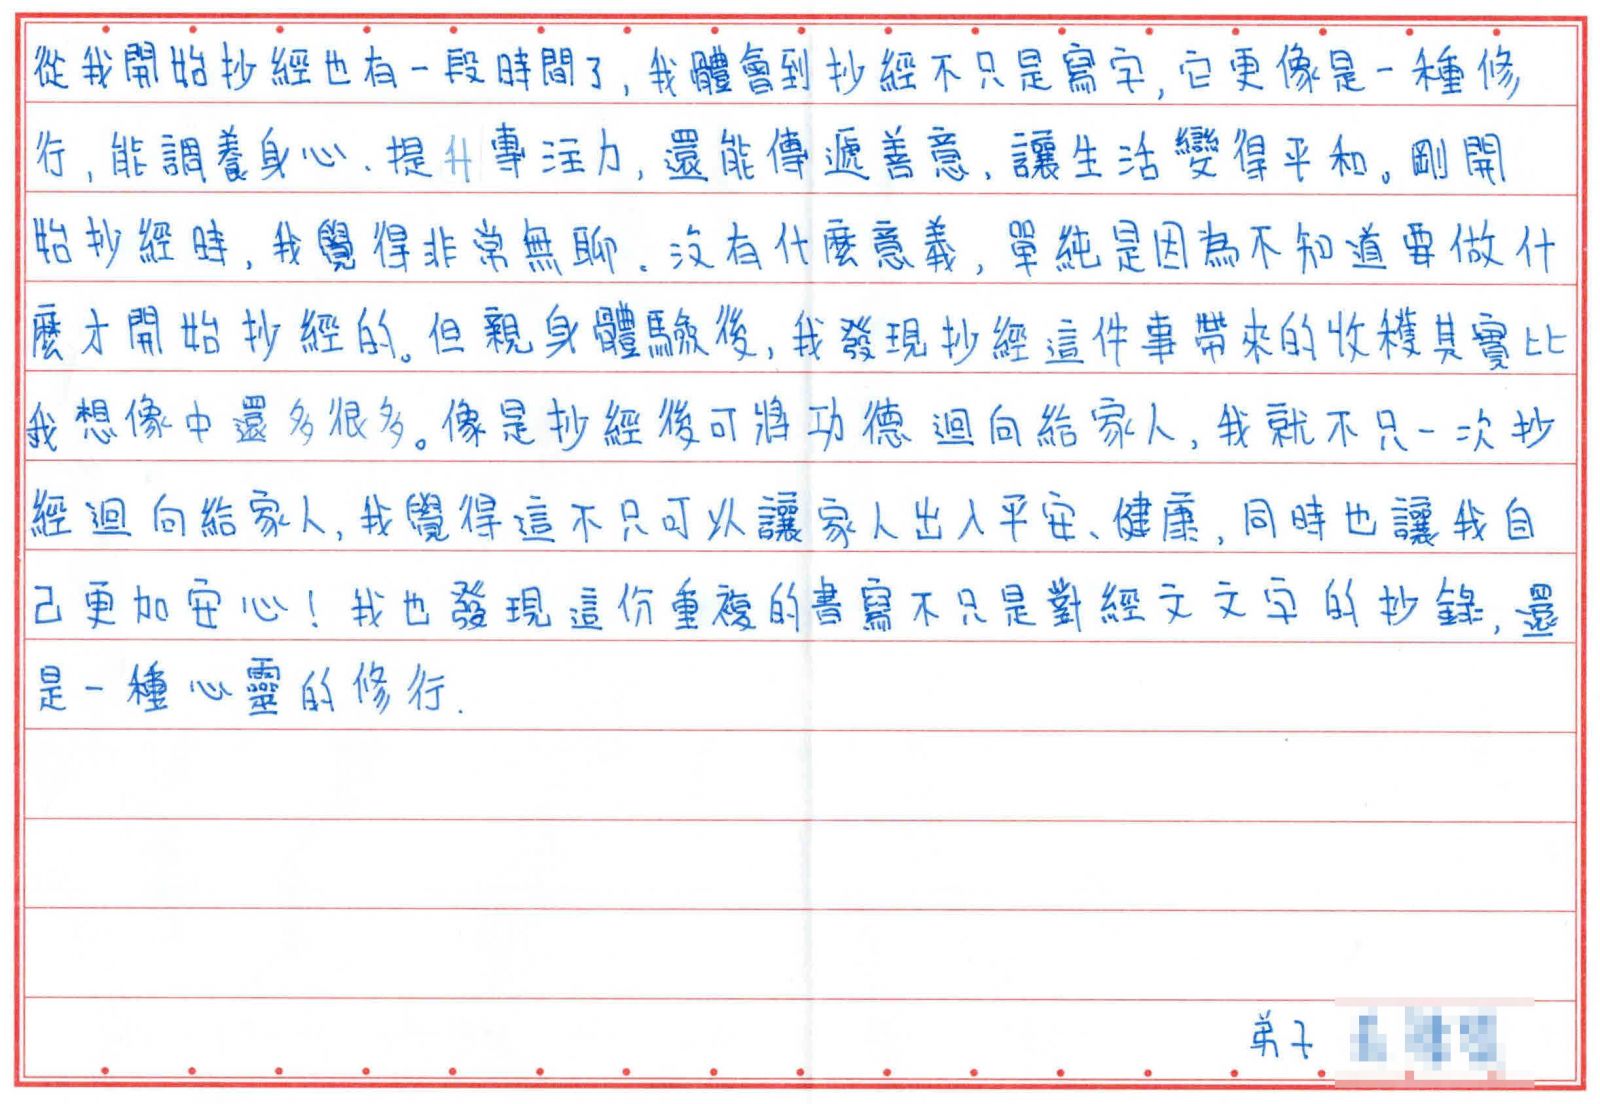 從我開始抄經也有一段時間了,我體會到抄經不只是寫字,它更像是一種修
行,能調養身心、提升專注力,還能傳遞善意,讓生活變得平和。剛開
始抄經時,我覺得非常無聊、沒有什麼意義,單純是因為不知道要做什
麼才開始抄經的。但親身體驗後,我發現抄經這件事帶來的收穫其實比
我想像中還多很多。像是抄經後可將功德迴向給家人,我就不只一次抄
經迴向給家人,我覺得這不只可以讓家人出入平安、健康,同時也讓我自
己更加安心!我也發現這份重複的書寫不只是對經文文字的抄錄,還
是一種心靈的修行.
弟子